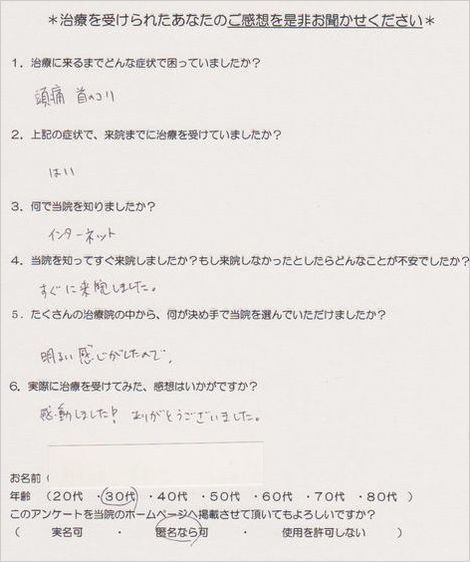 ＊治療を受けられたあなたのご感想を是非お聞かせください＊
1．治療に来るまでどんな症状で困っていましたか？
頭痛 首のコリ
2．上記の症状で、来院までに治療を受けていましたか？
はい
3．何で当院を知りましたか？
インターネット
4．当院を知ってすぐ来院しましたか？もし来院しなかったとしたらどんなことが不安でしたか？
すぐに来院しました。
5．たくさんの治療院の中から、何が決め手で当院を選んでいただけましたか？
明るい感じがしたので、
6．実際に治療を受けてみた、感想はいかがですか？
感動しました！ ありがとうございました。
お名前（
年齢 （20代 ・30代 ・40代 ・50代 ・60代 ・70代 ・80代 ）
このアンケートを当院のホームページへ掲載させて頂いてもよろしいですか？
（ 実名可 ・ 匿名なら可 ・ 使用を許可しない ）